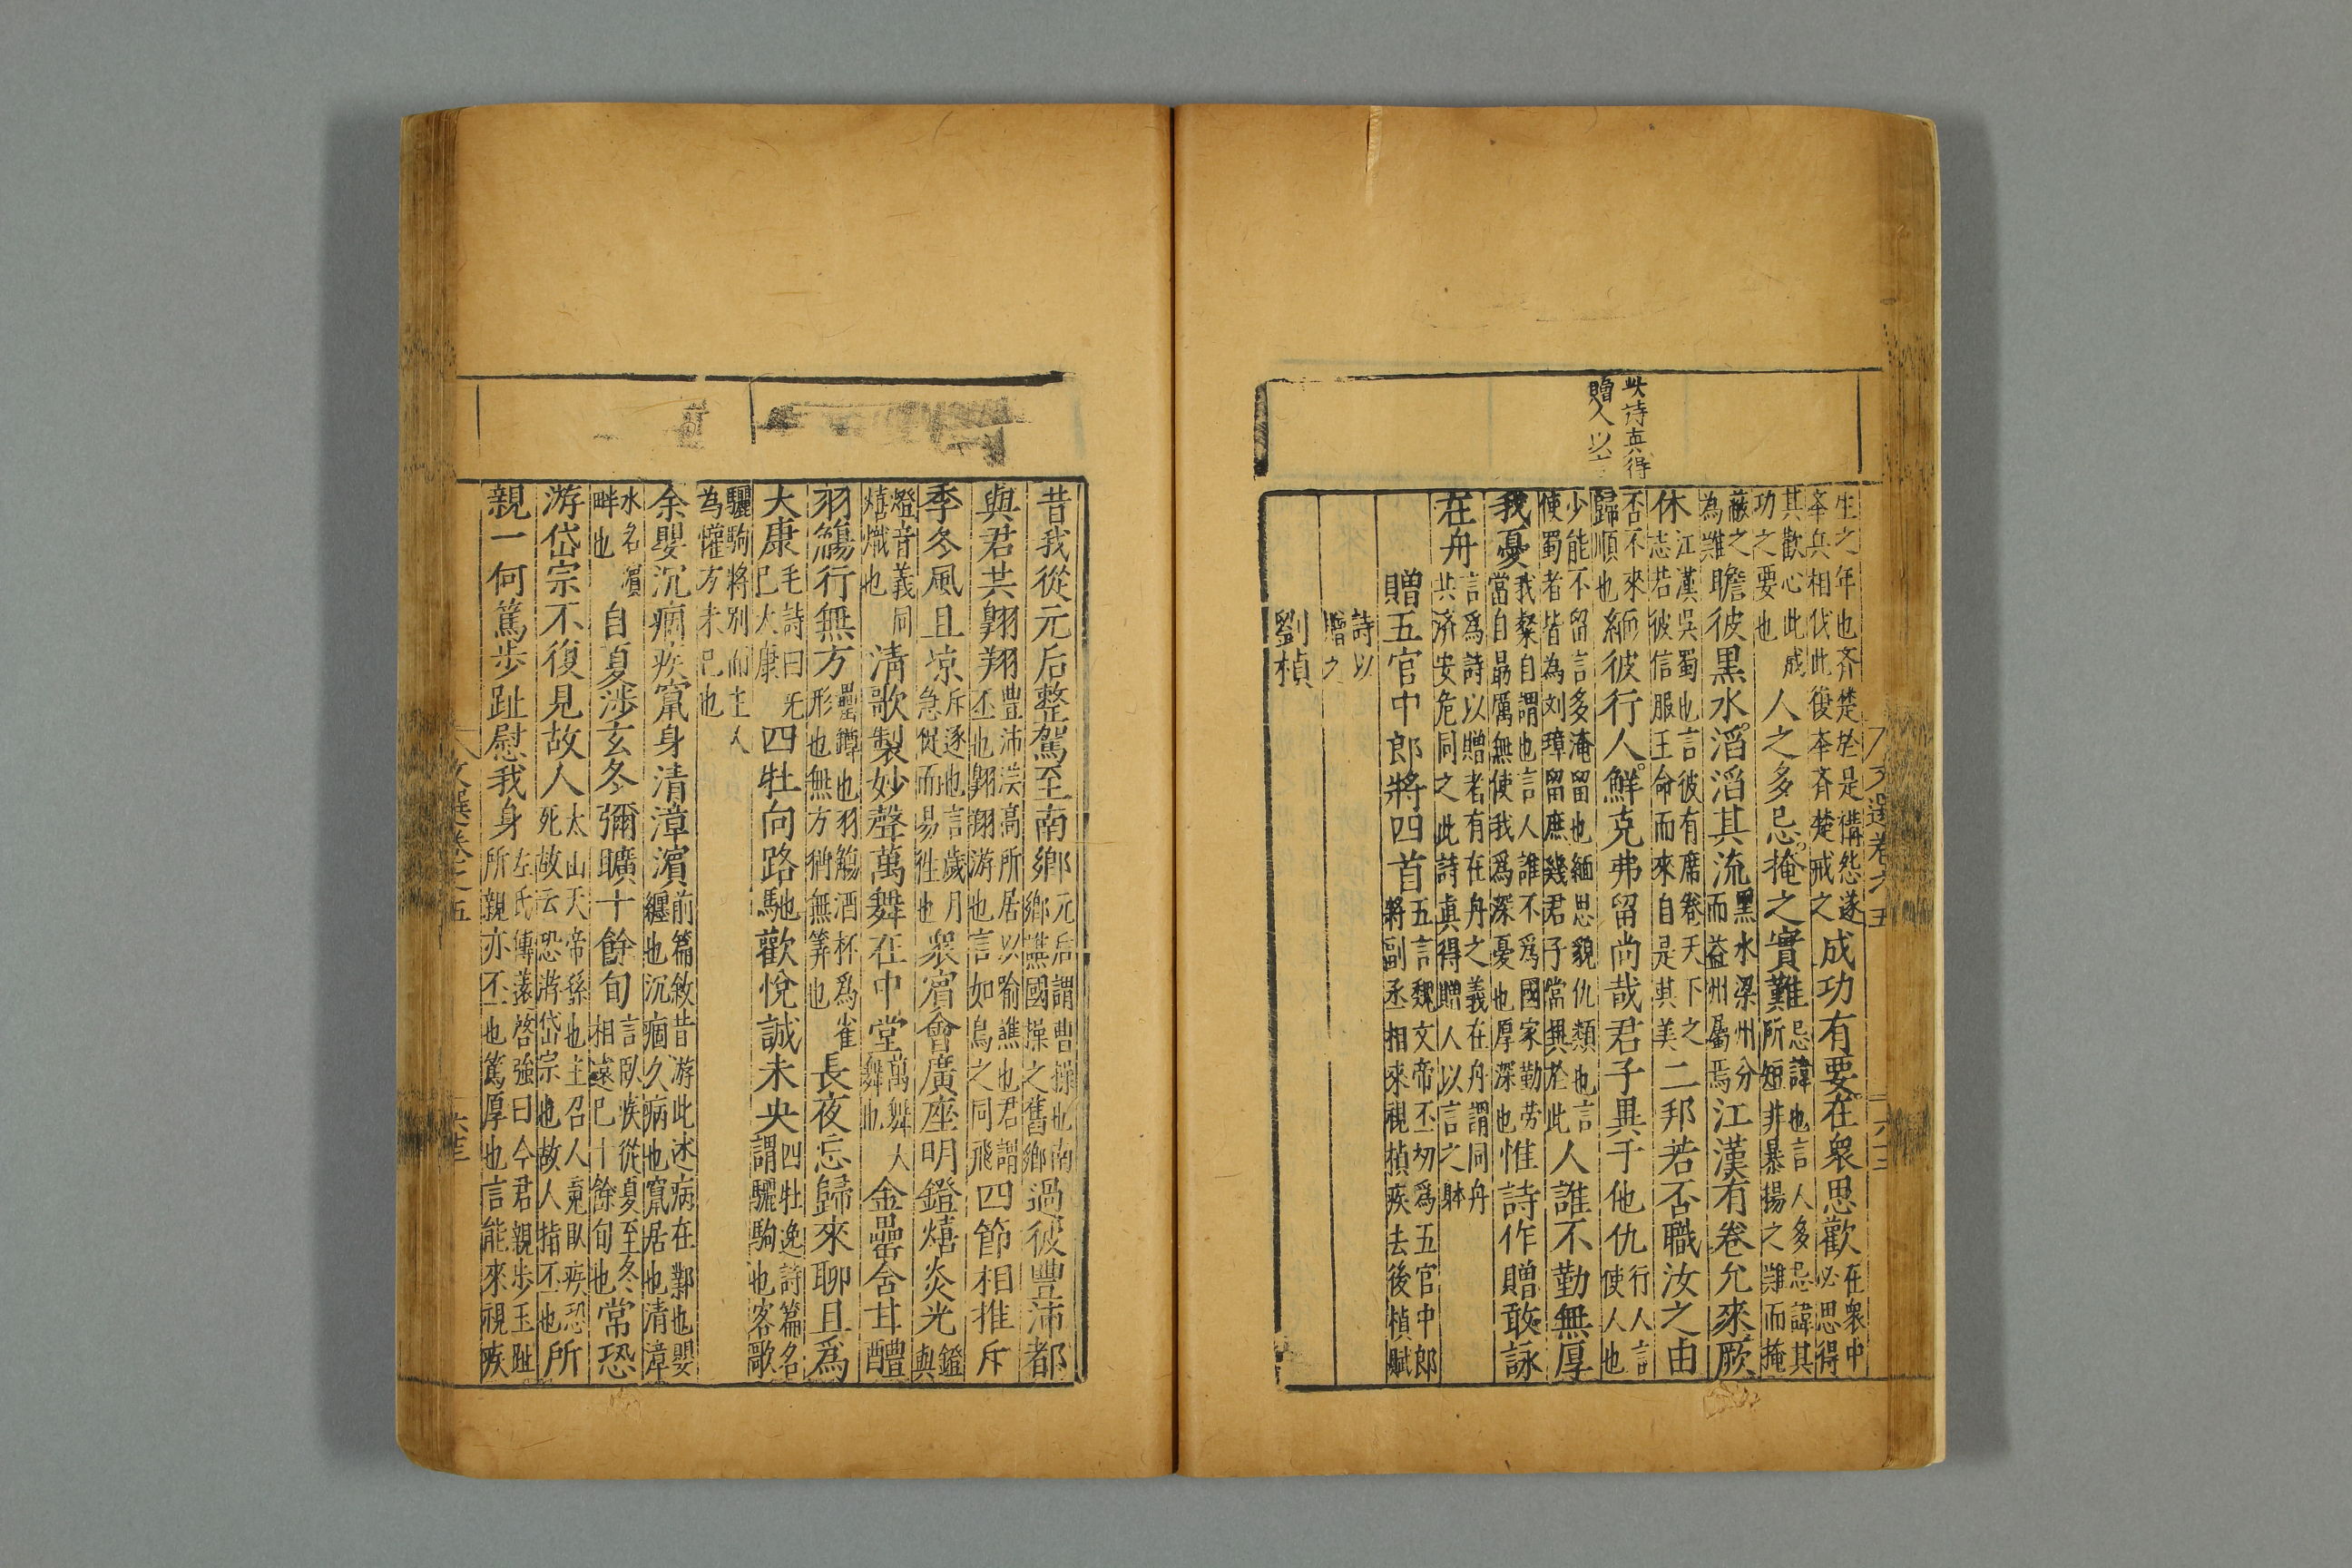 此詩真得
贈人以言
生之年也齊楚於是構怨遂
夲兵相伐此復夲齊楚戒之
成功有要在衆思歡
在衆中
必思得
其歡心此成
功之要也
人之多忌掩之實難
忌諱也言人多忌諱其
所短非暴揚之難而掩
蔽之
為難
瞻彼黒水滔滔其流
黒水梁州分
而益州屬焉
江漢有卷允來厥
休
江漢吳蜀也言彼有席卷天下之
志若彼信服王命而來自是其美
二邦若否職汝之由
否不來
歸順也
緬彼行人鮮克弗留尚哉君子異于他仇
行人言
使人也
少能不留言多淹留也緬思貌仇類也言
使蜀者皆為刘璋留庶幾君子當異於此
人誰不勤無厚
我憂
我粲自謂也言人誰不爲國家勤劳
當自勗厲無使我爲深憂也厚深也
惟詩作贈敢詠
在舟
言爲詩以贈者有在舟之義在舟謂同舟
共济安危同之此詩眞得贈人以言之躰
贈五官中郎將四首
五言魏文帝丕初爲五官中郎
將副丞相來視楨疾去後楨賦
詩以
贈之
劉楨
昔我從元后整駕至南鄉
元后謂曹操也南
鄉譙國操之舊鄉
過彼豐沛都
與君共翺翔
豐沛漢高所居以喻譙也君謂
丕也翺翔游也言如鳥之同飛
四節相推斥
季冬風且凉
斥逐也言歲月
急促而易徃也
衆賔會廣座明鐙熺炎光
鐙與
燈音義同
熺熾也
清歌製妙聲萬舞在中堂
萬舞大
舞也
金罍含甘醴
羽觴行無方
罍鐏也羽觴酒杯爲雀
形也無方猶無筭也
長夜忘歸來聊且爲
大康
毛詩曰无
已大康
四牡向路馳歡悅誠未央
四牡逸詩篇名
謂驪駒也客歌
驪駒將別而主人
為懽方未已也
余嬰沉痼疾竄身清漳濵
前篇敘昔游此述病在鄴也嬰
纏也沉痼久病也竄居也清漳
水名濵
畔也
自夏涉玄冬彌曠十餘旬
言臥疾從夏至冬
相遠已十餘旬也
常恐
游岱宗不復見故人
太山天帝孫也主召人䰟臥疾恐
死故云恐游岱宗也故人指丕也
所
親一何篤步趾慰我身
左氏傳薳啓強曰今君親步玉趾
所親亦丕也篤厚也言能來視疾
文選卷之五